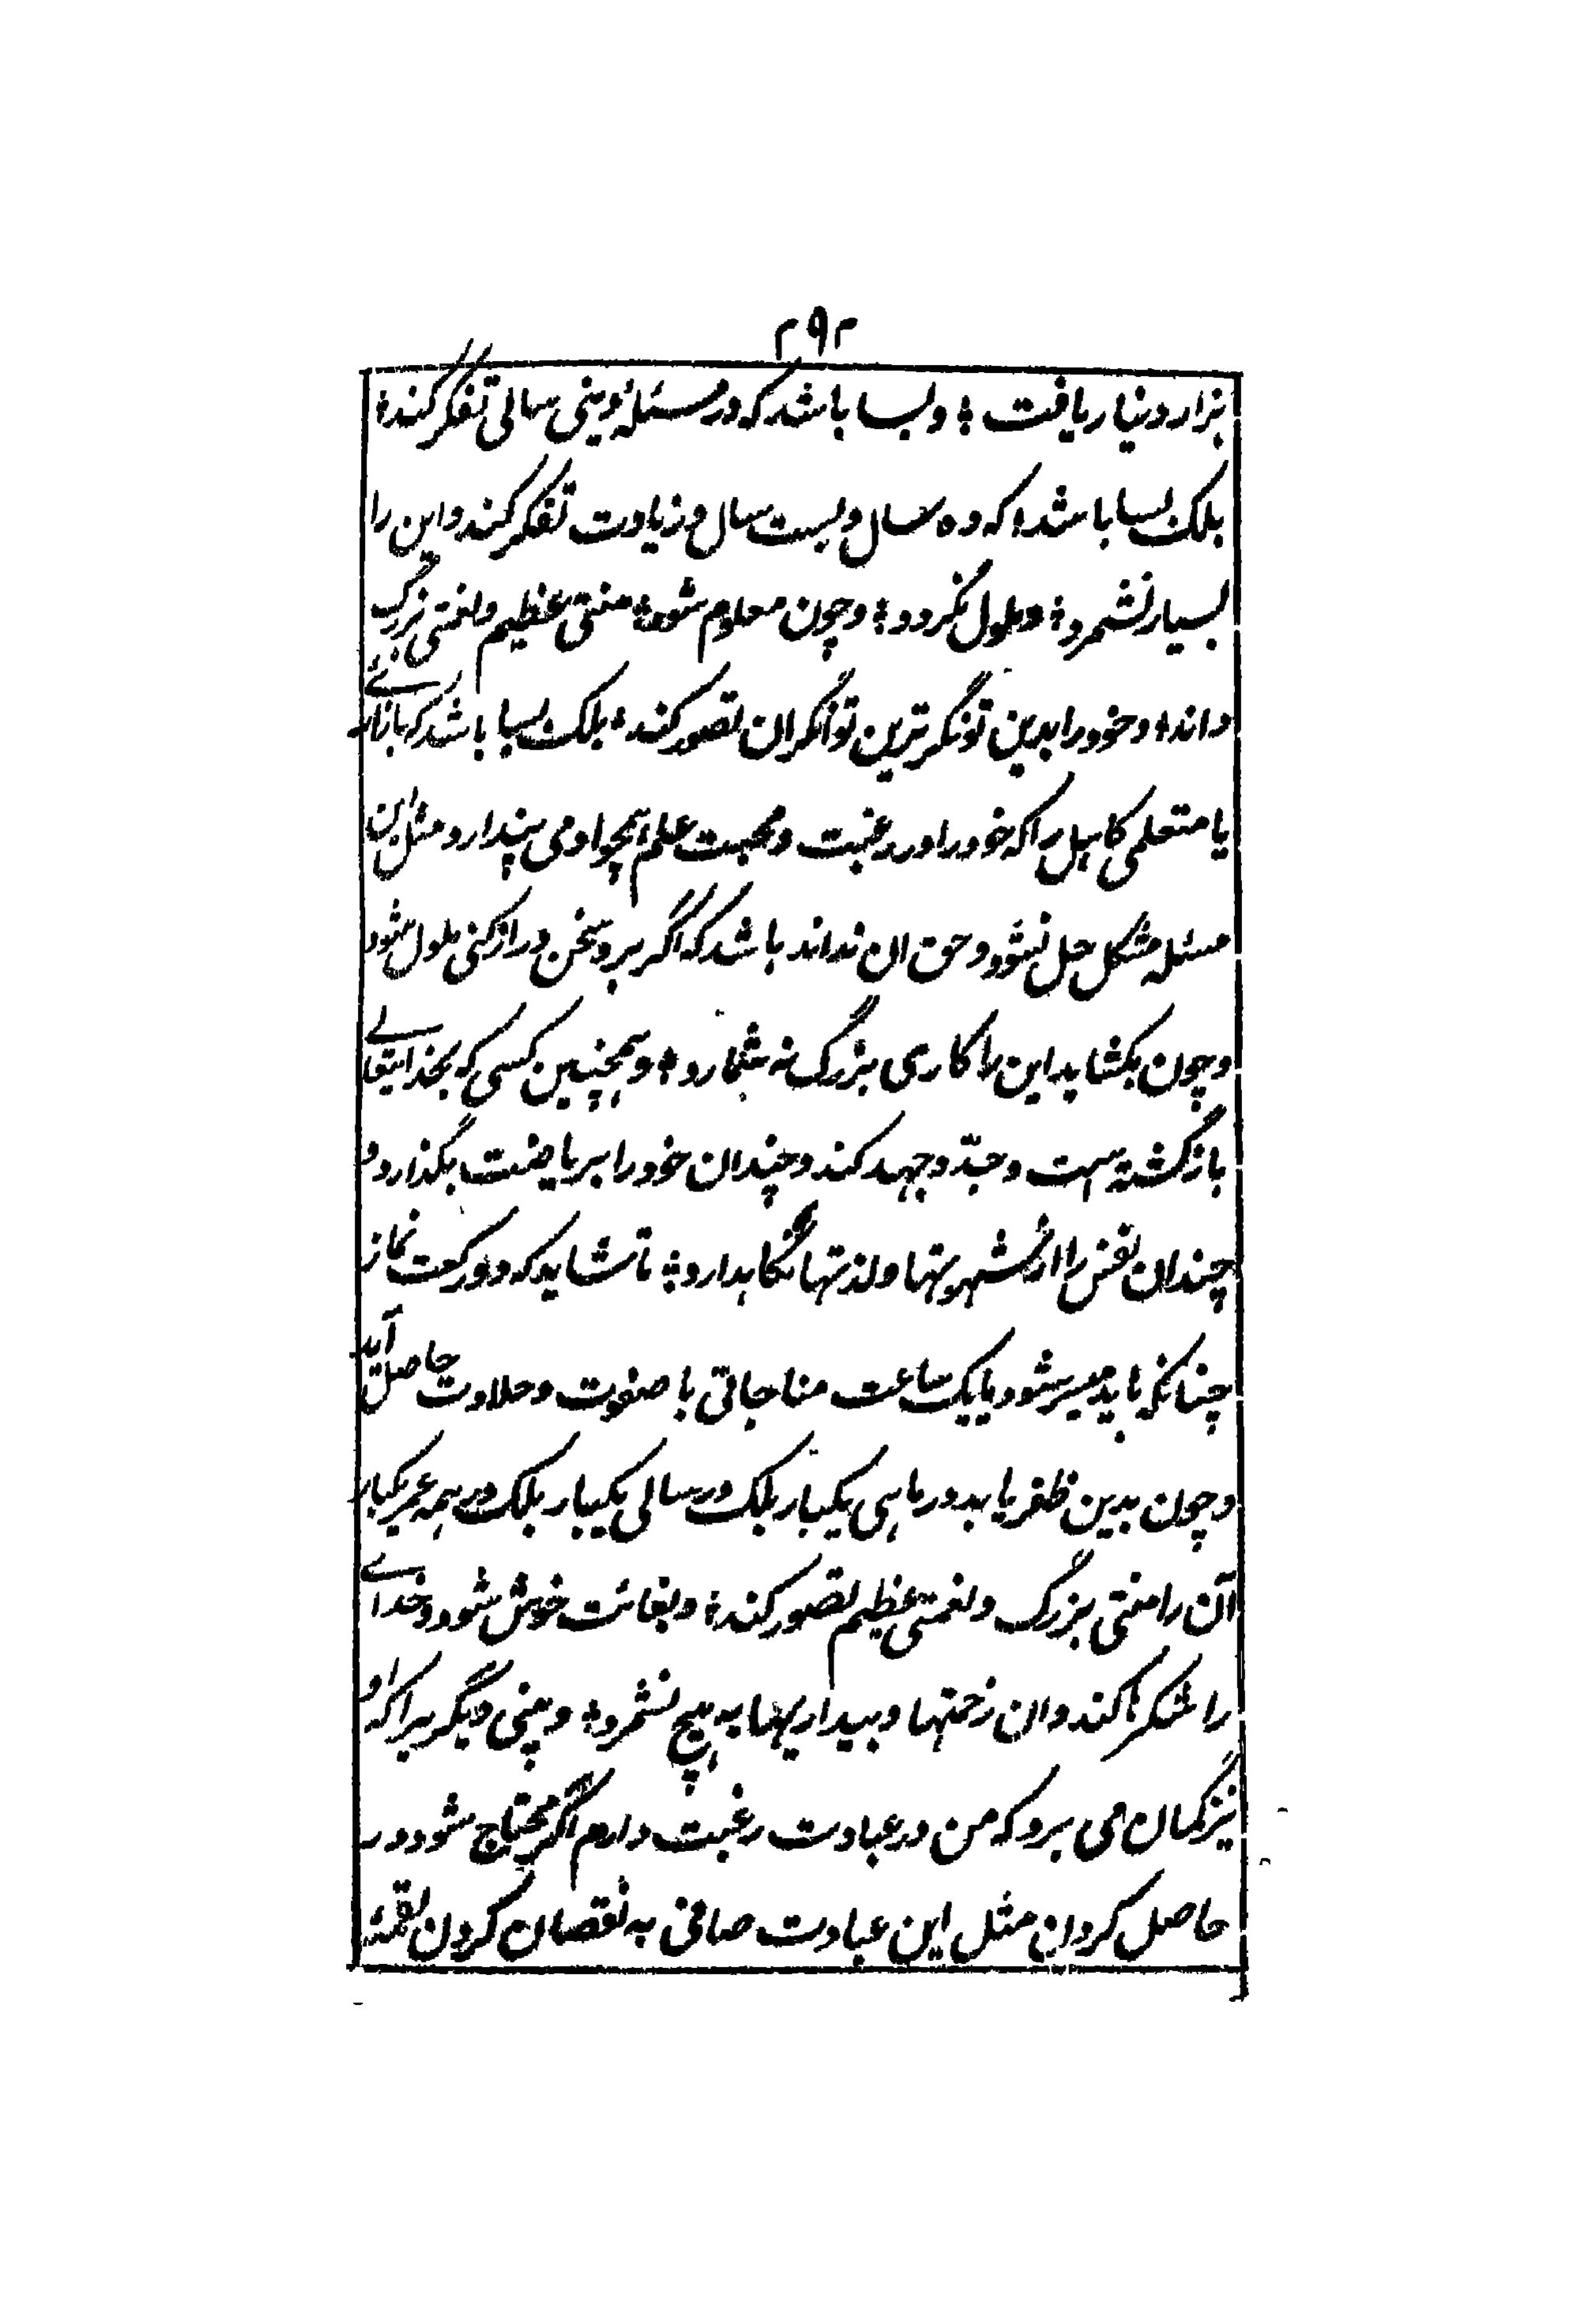 ۲۹۲
هزار دینار یافت ؛ و بسا باشد که در مسئلهٔ دینی سالی تفکر کند ؛
بلک بسا باشد ؛ که ده سال و بیست سال و زیادت تفکر کند و این را
بسیار نشمرد ؛ و ملول نگردد ؛ و چون معلوم شود ؛ منتی عظیم و نعمتی بزرگ
داند ؛ و خود را بدین تونگر ترین توانگران تصور کند ؛ بلک بسا باشد که بازارئے
یا متعلمی کاہل را که خود را در رغبت و محبت علم ہمچو او می پندارد و مثل این
مسئله مشکل حل نشود و حق ان نداند باشد که اگر برو سخن دراز کنی ملول شود
و چون بکشاید این را کاری بزرگ نه شمارد ؛ و ہمچنین کسی که بخدایتعالے
بازگشته است و جدّ و جہد کند و چندان خود را بریاضت بگذارد و
چندان نفس را از شہوتہا و لذتہا نگاہدارد ؛ تا شاید که دو رکعت نماز
چنانکه باید میسر شود یا یک ساعت مناجاتی با صفوت و حلاوت حاصل آید
و چون بدین ظفر یابد در ماہی یکبار بلک در سالی یکبار بلک در ہمه عمر یکبار
آن را منتی بزرگ و نعمتی عظیم تصور کند ؛ و بغائت خوش شود و خداے
را شکرہا کند و ان زحمتہا و بیداریہا به ہیچ نشمرد ؛ و بینی دیگر یرا که او
نیز گمان می برد که من در عبادت رغبت دارم اگر محتاج شود در
حاصل کردن مثل این عبادت صافی به نقصان کردن لقمهٔ